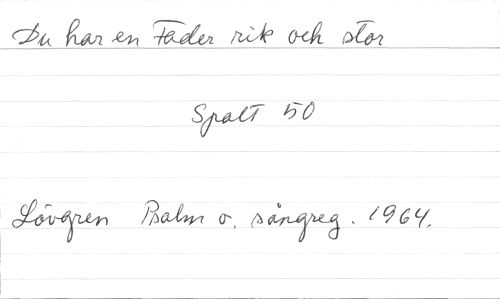 Du har en Fader rik och stor
Spalt 50
Lövgren Psalm o. sångreg. 1964.